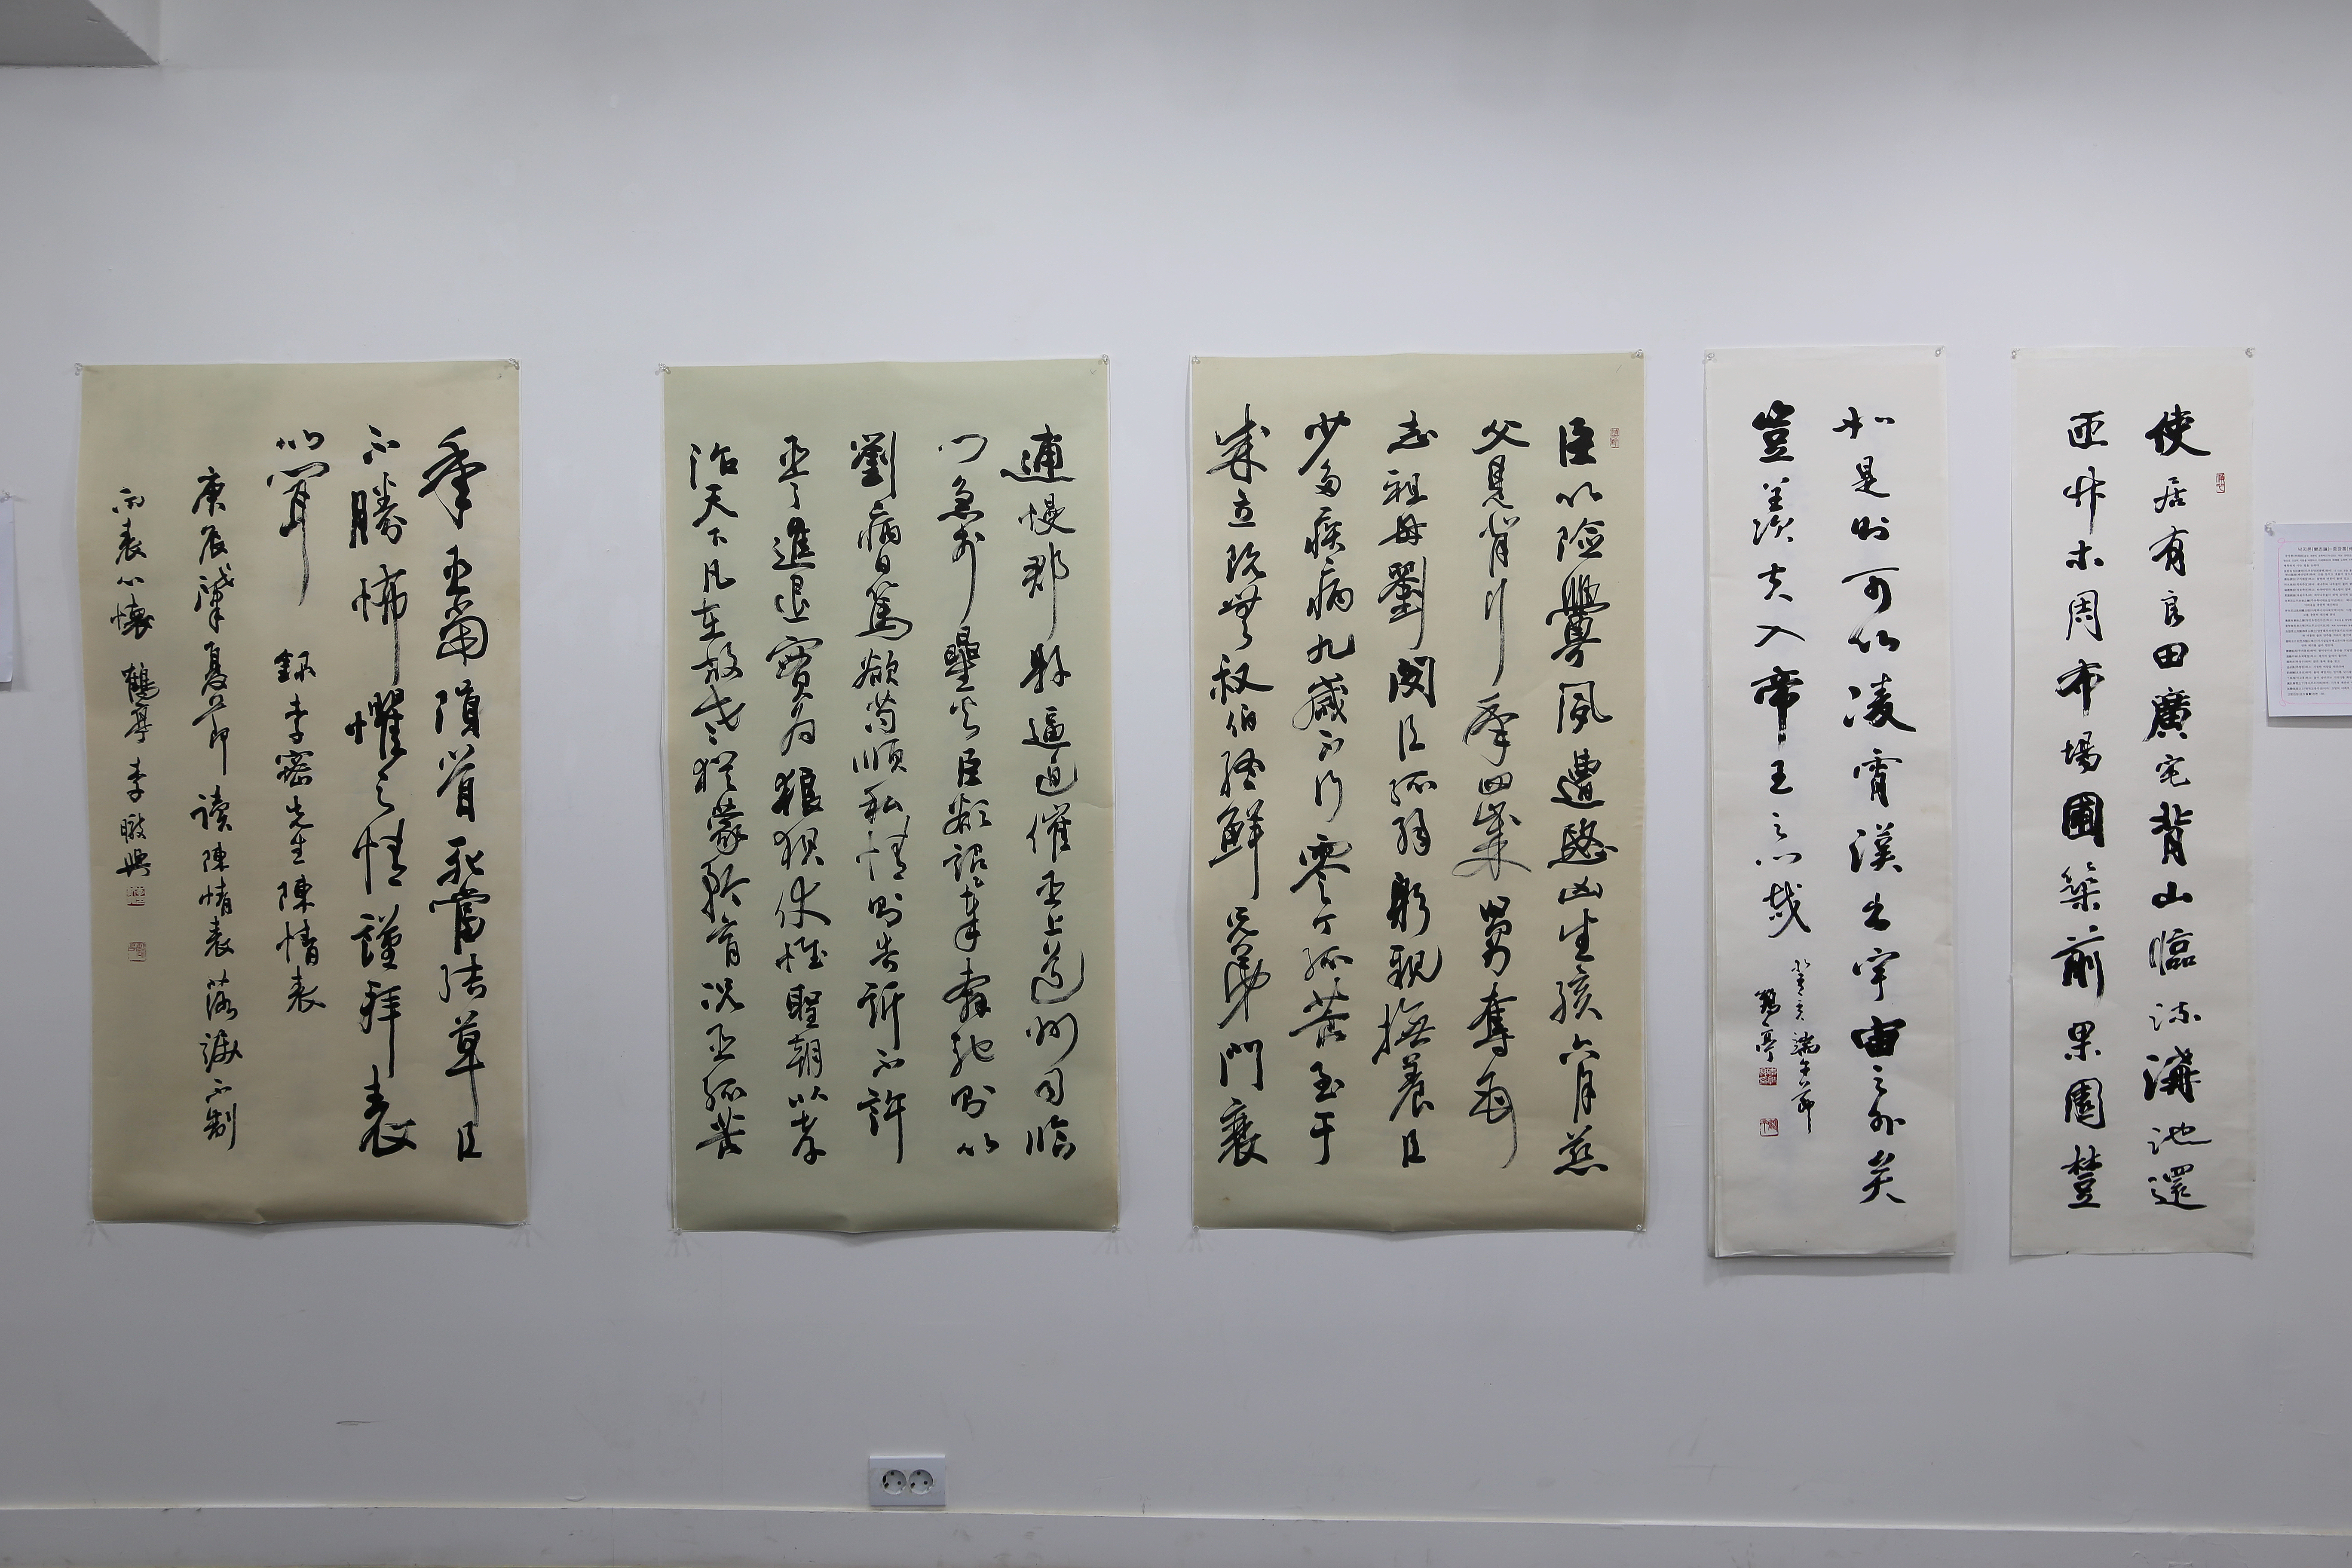 使居有良田廣宅背山臨流溝池還
匝竹木周布場圃築前果園樹
如是則可以凌霄漢出宇宙之外矣
豈羨夫入帝王之門哉
癸亥端午節
鶴亭
臣以險釁夙遭愍凶生孩六月慈
父見背行年四歲舅奪母
志祖母劉閔臣孤弱躬親撫養臣
少多疾病九歲不行零丁孤苦至于
成立既無叔伯終鮮兄弟門衰
逋慢郡縣逼迫催臣上道州司臨
門急於星火臣欲詔奉奔馳則以
劉病日篤欲苟順私情則告訴不許
臣之進退實爲狼狽伏惟聖朝以孝
治天下凡在故老猶蒙矜育況臣孤苦
年臣當隕首死當結草臣
不勝怖懼之情謹拜表
以聞 錄李密先生陳情表
庚辰肇夏節讀陳情表落淚不制
而表心懷 鶴亭 李 興